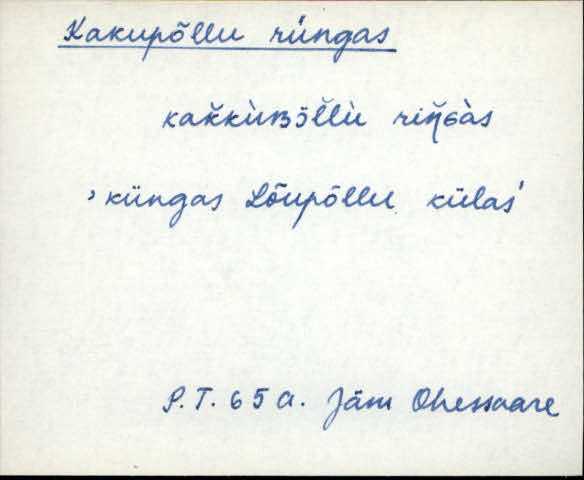 Kakupõllu rüngas
kak̆kùʙɜ̄l̆lù riŋ̆ɢàs
'küngas Lõupõllu külas'
P.T. 65 a. Jäm Ohessaare